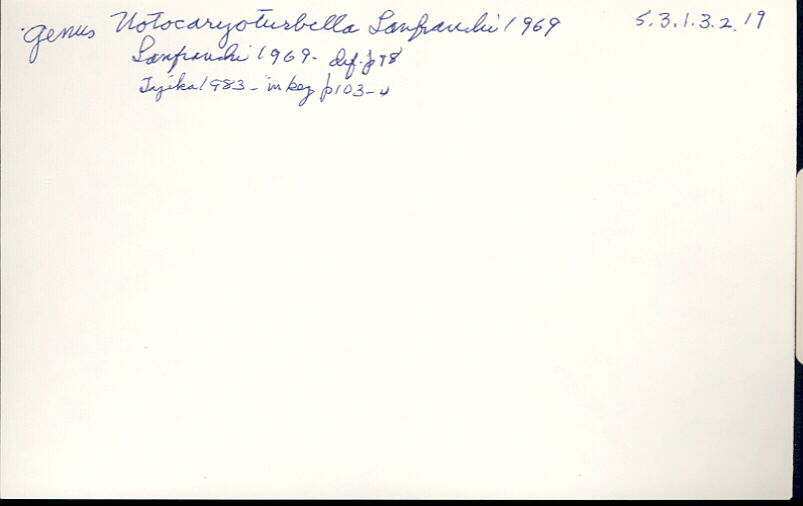 genus Notocaryoturbella Lanfranchi 1969 5.3.1.3.2.19
Lanfranchi 1969 - def. p 98
Tajika 1983 - in key p 103 -